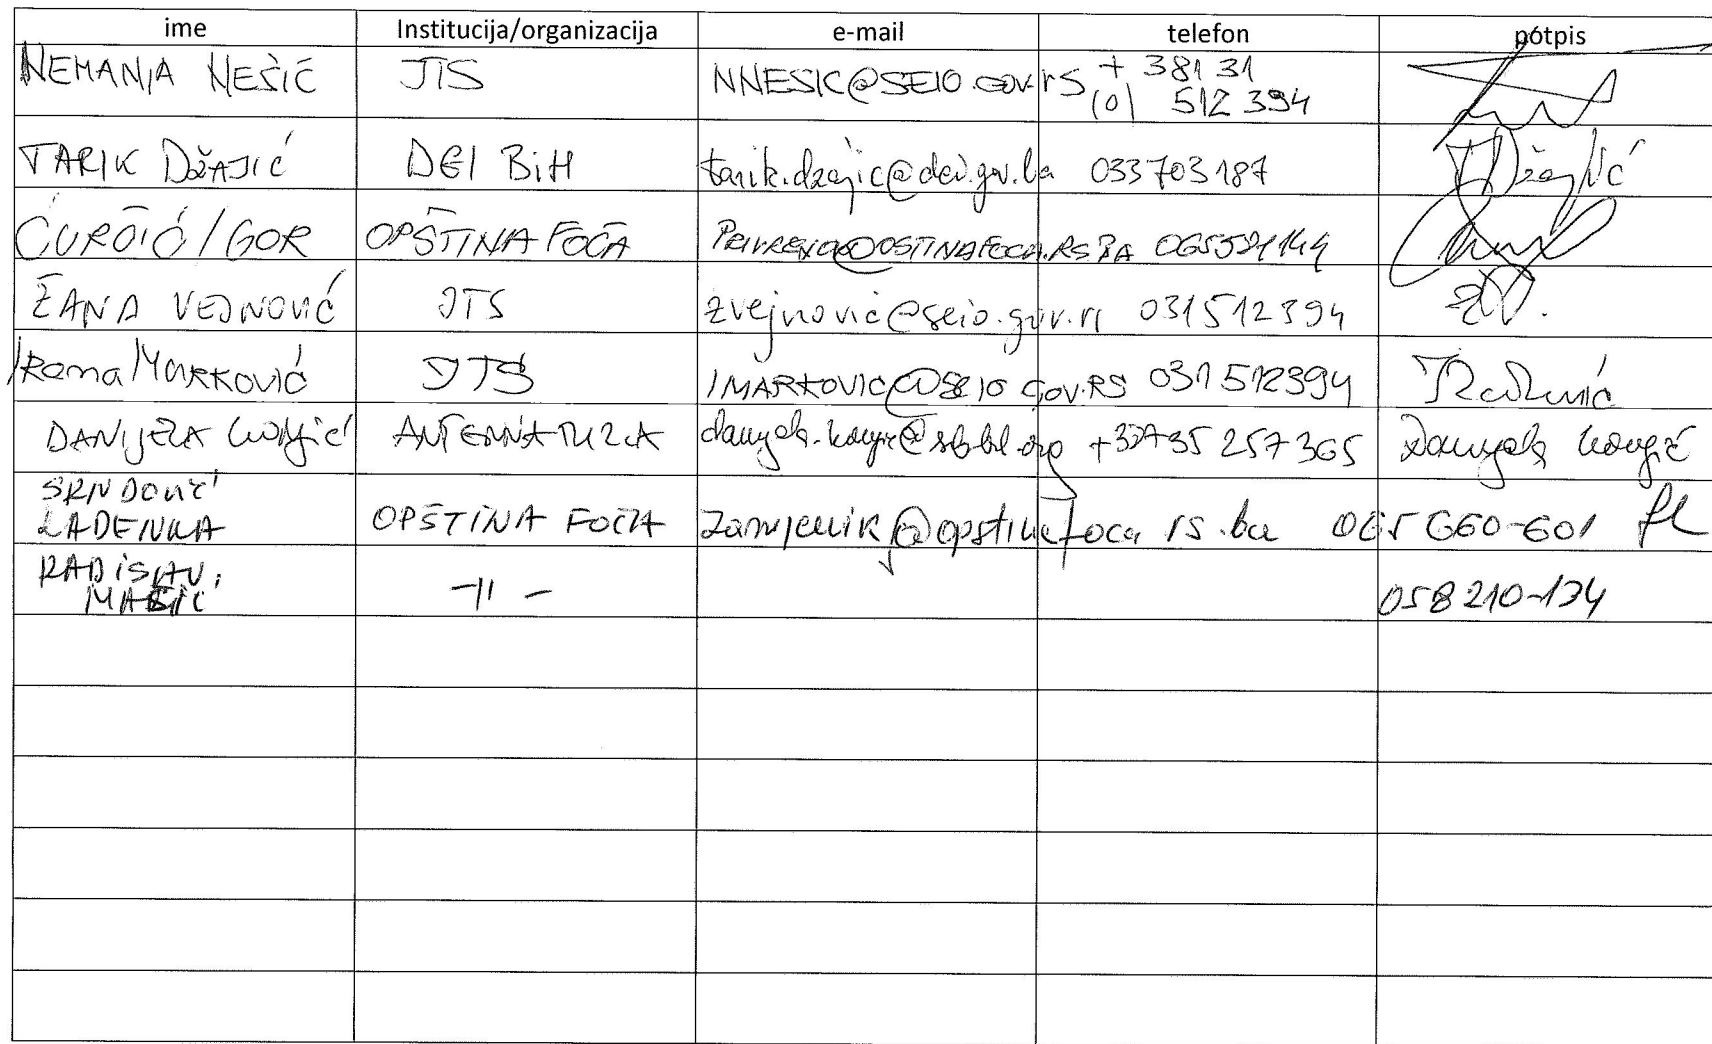 ime Institucija/organizacija e-mail telefon potpis
NEMANJA NEŠIĆ JTS NNESIC@SEIO.GOV.RS + 381 31
(0) 512 394
TARIK DŽAJIĆ DEI BiH tarik.dzajic@dei.gov.ba 033 703 187 TDžajić
ĆURČIĆ IGOR OPŠTINA FOČA 065521144
ŽANA VEJNOVIĆ JTS zvejnovic@seio.gov.rs 031512394 ŽV.
Irena Marković JTS IMARKOVIC@SEIO.GOV.RS 031 512394
DANIJELA ANTENNA TUZLA 35 257 365 Danijela
SRNDOVIĆ
OPŠTINA FOČA zamjenik@opstinafoca.rs.ba 065 660-601
RADISAV
MAŠIĆ -||- 058 210-134